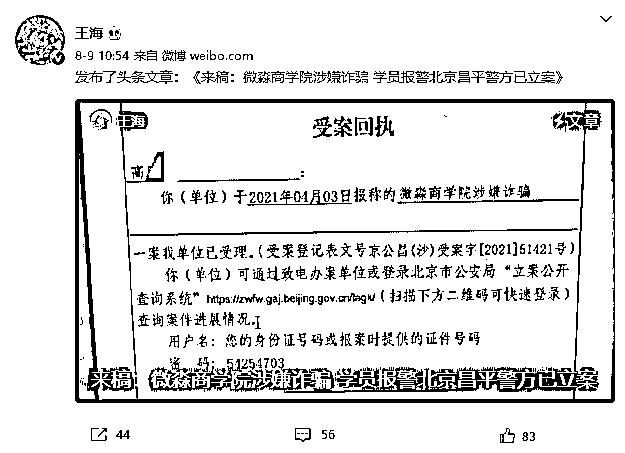 王海
8-9 10:54 来自 微博 weibo.com
发布了头条文章：《来稿：微淼商学院涉嫌诈骗 学员报警北京昌平警方已立案》
王海
文章
受案回执
高
：
你（单位）于2021年04月03日报称的微淼商学院涉嫌诈骗
一案我单位已受理。（受案登记表文号京公昌(沙)受案字[2021]51421号）
你（单位）可通过致电办案单位或登录北京市公安局“立案公开
查询系统”https://zwfw.gaj.beijing.gov.cn/lagk/（扫描下方二维码可快速登录）
查询案件进展情况。
用户名：您的身份证号码或报案时提供的证件号码
密 码：51254703
来稿：微淼商学院涉嫌诈骗 学员报警北京昌平警方已立案
44 56 83